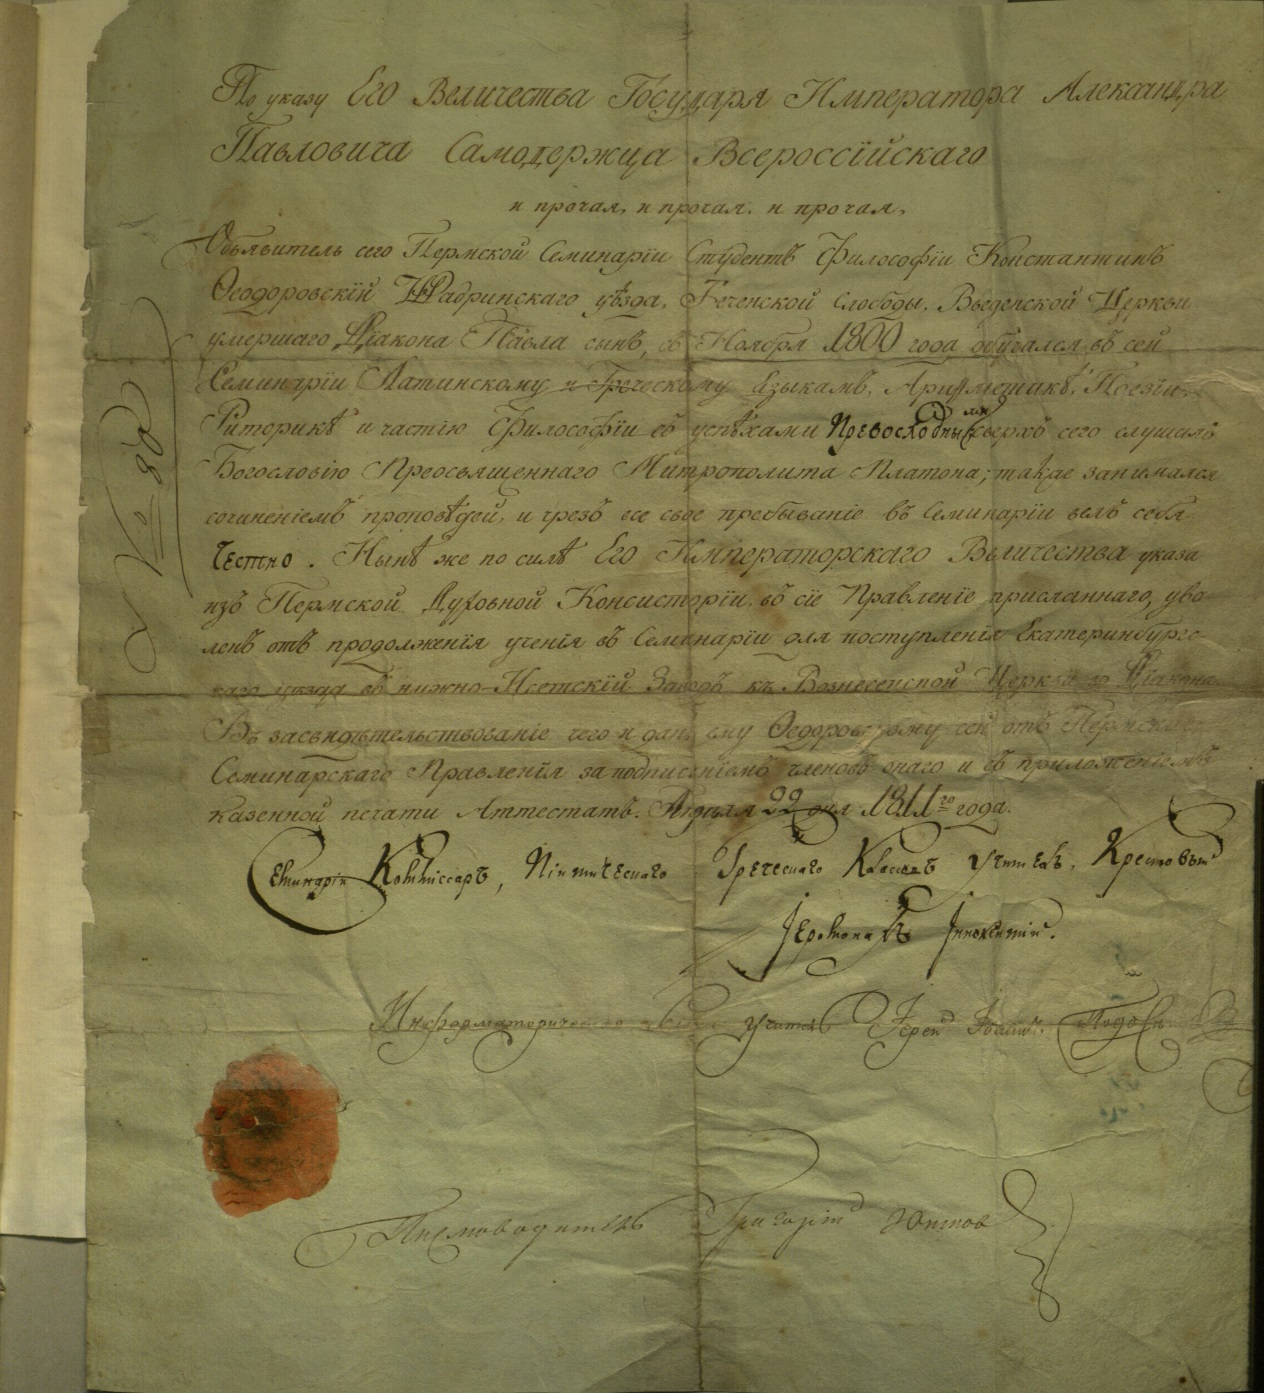 По указу Его Величества Государя Императора Александра
Павловича Самодержца Всероссійскаго
и прочая, и прочая, и прочая,
Объявитель сего Пермской Семинаріи Студентъ Философіи Константинъ
Ѳеодоровскій Шадринскаго уѣзда, Теченской Слободы, Введенской Церкви
умершаго Діакона Павла сынъ, съ Ноября 1800 года обучался въ сей
Семинаріи Латинскому и Греческому Языкамъ, Ариѳметикѣ, Поезіи,
Риторикѣ и частію Философіи съ успѣхами Превосходными сверхъ сего слушалъ
Богословію Преосвященнаго Митрополита Платона; также занимался
сочиненіемъ проповѣдей, и чрезъ все свое пребываніе въ Семинаріи велъ себя
Честно. Нынѣ же по силѣ Его Императорскаго Величества указа
изъ Пермской Духовной Консисторіи въ сіе Правленіе присланнаго, уво-
ленъ отъ продолженія ученія въ Семинаріи для поступленія Екатеринбургс-
каго уѣзда въ нижно-Исетскій Заводъ къ Вознесенской Церкви во Діакона.
Въ засвидѣтельствованіе чего и данъ ему Ѳедоровскому сей отъ Пермскаго
Семинарскаго Правленія за подписаніемъ членовъ онаго и съ приложеніемъ
казенной печати Аттестатъ. Апрѣля 22 дня 1811го года.
Семинаріи Коммиссаръ, Піитическаго Греческаго Классовъ Учитель, Крестовый
Іеромонахъ Іннокентій.
Информаторическаго Класса Учитель Іерей Іоаннъ
Писмоводитель Григорій
No 38